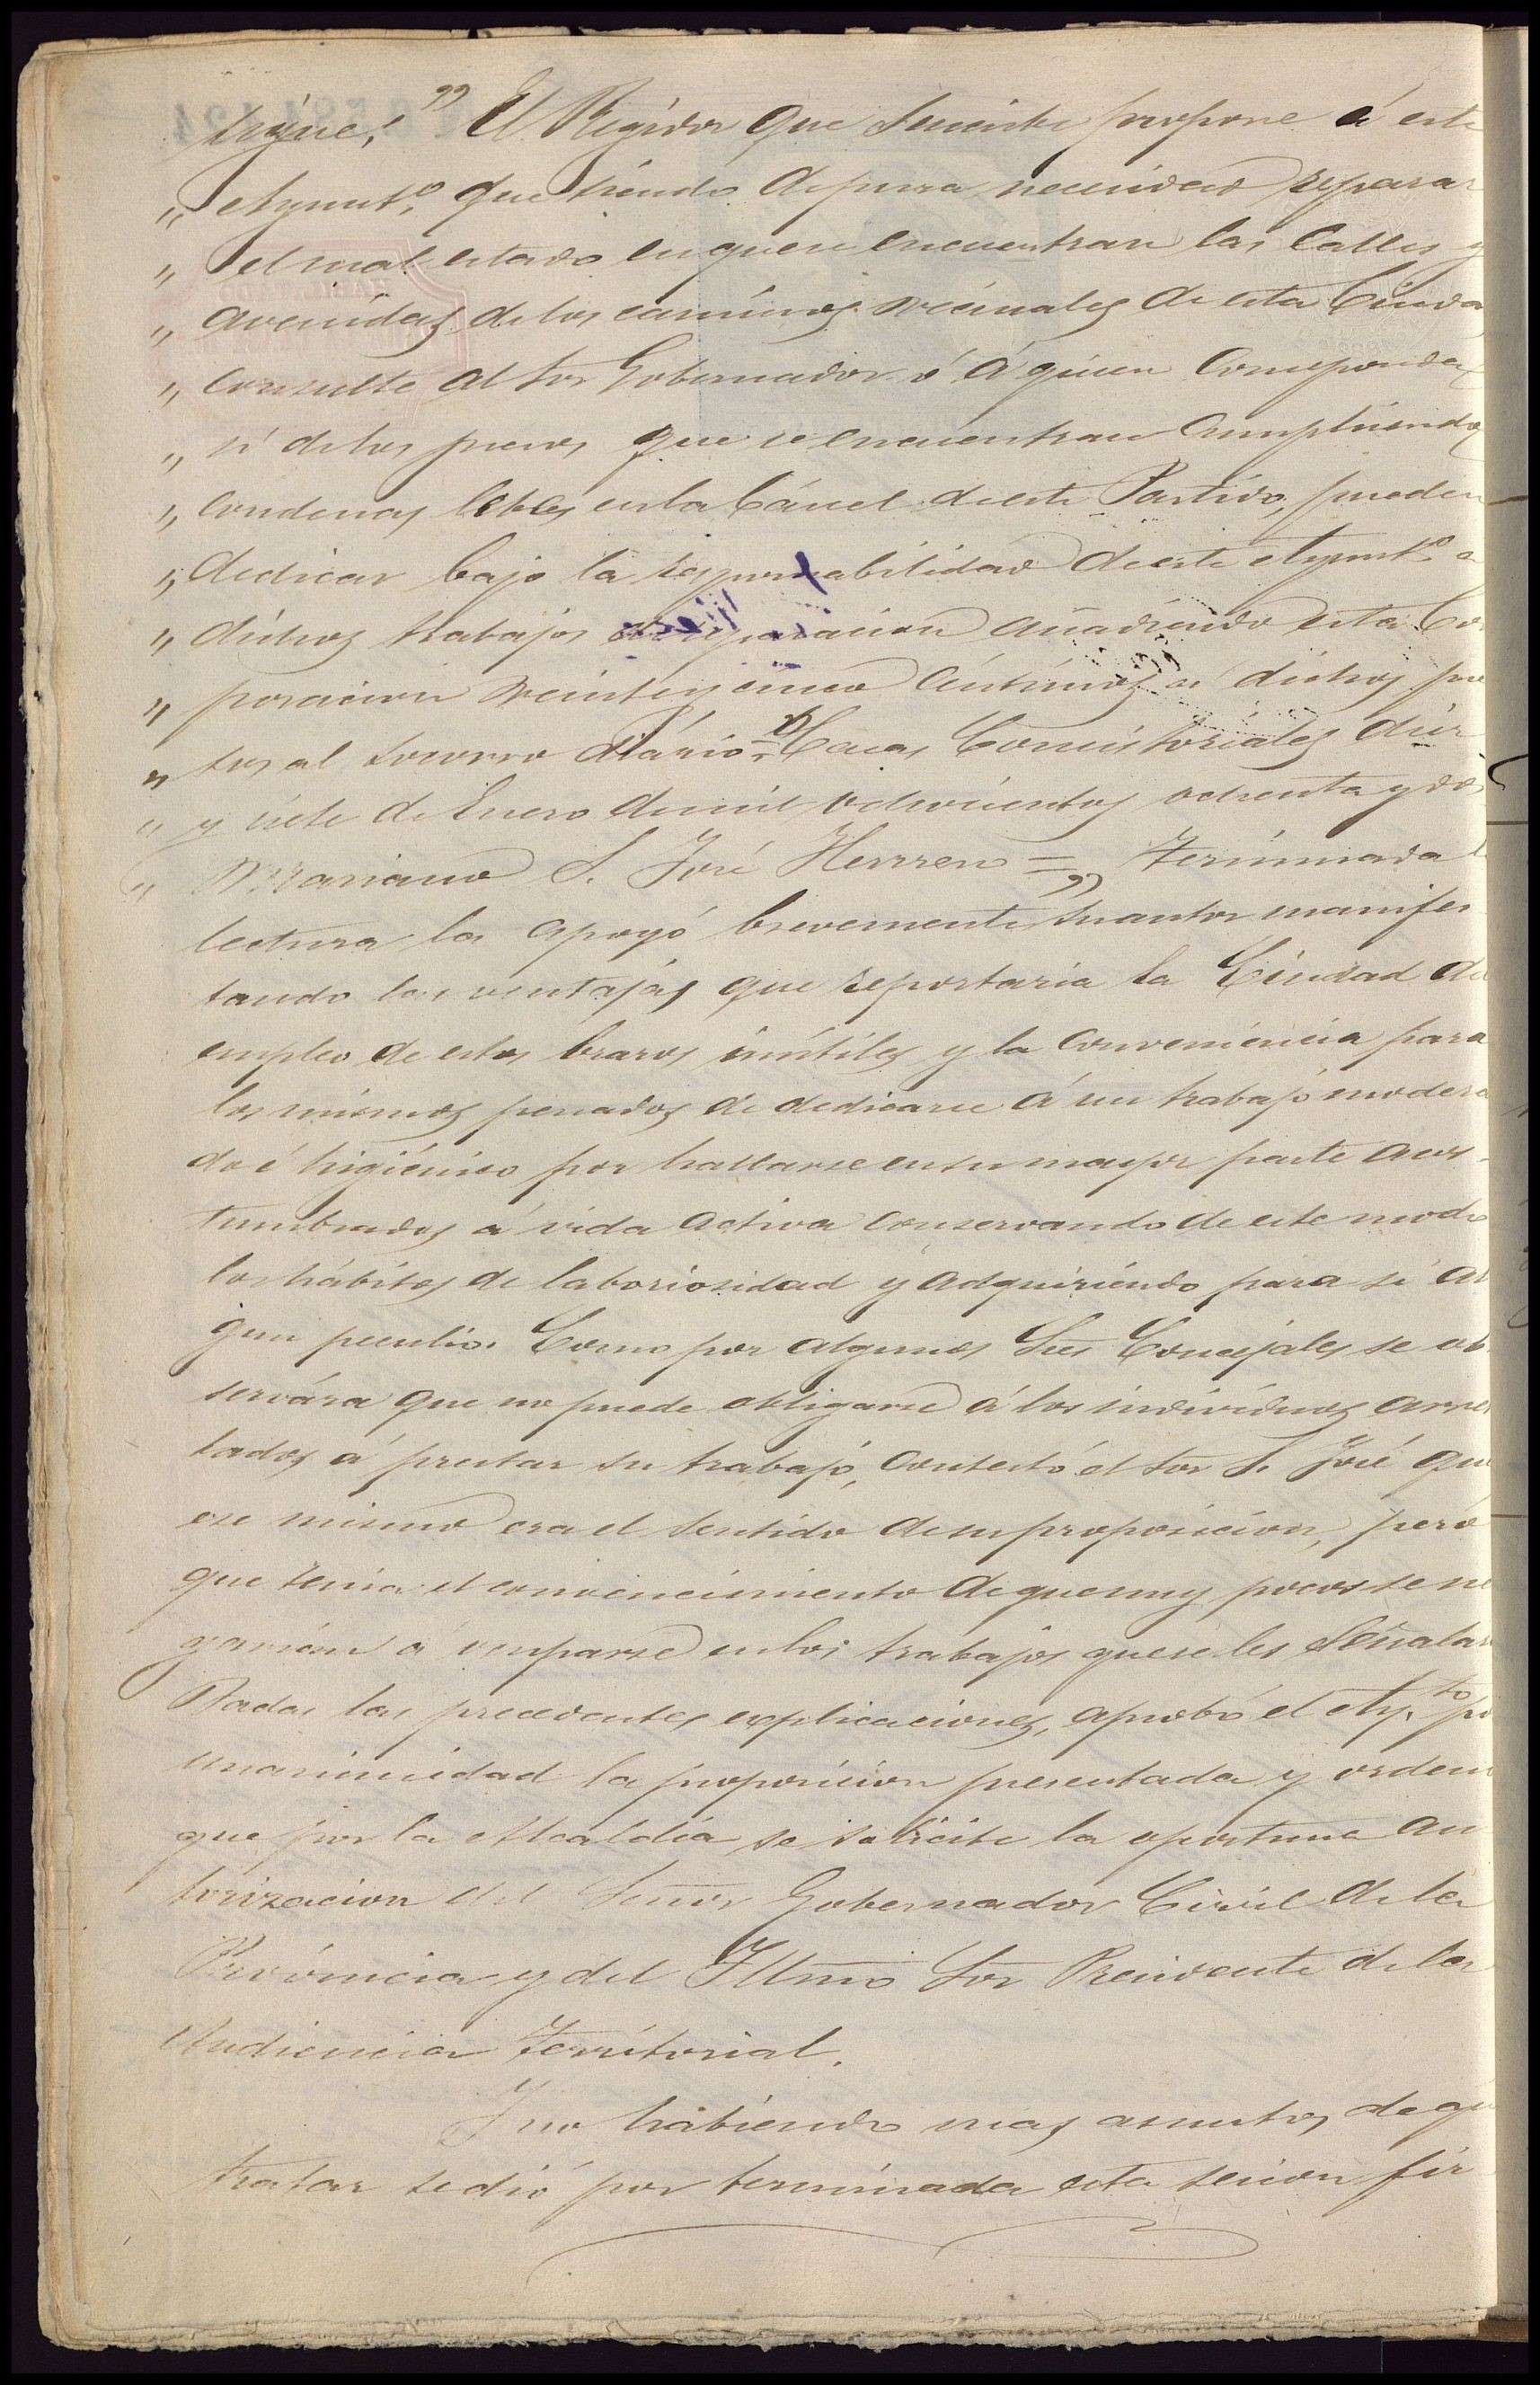 sigue: " El Regidor que suscribe propone á este
" Ayunt.º que siendo de pura necesidad reparar
" el mal estado en que se encuentran las Calles y
" avenidas de los caminos vecinales de esta Ciudad
" consulte al Sor Gobernador ó á quien Corresponda
" si de los presos que se encuentran Cumpliendo
" condenas leves en la Cárcel de este Partido, pueden
" dedicar bajo la responsabilidad de este Ayunt.º a
" dichos trabajos de reparacion añadiendo esta Cor
" poracion veinte y cinco Céntimos á dichos pre
" sos al socorro diario = Casas Consistoriales diez
" y siete de Enero de mil ochocientos ochenta y dos
" Mariano S. José Herrero = " Terminada la
lectura la apoyó brevemente su autor manifes
tando las ventajas que reportaria la Ciudad del
empleo de estos brazos inútiles y la conveniencia para
los mismos penados de dedicarse á un trabajo modera
do é higiénico por hallarse en su mayor parte acos-
tumbrados á vida activa conservando de este modo
los hábitos de laboriosidad y adquiriendo para si al
gun peculio. Como por algunos Sres Concejales se ob
servára que no puede obligarse á los individuos arres
tados á prestar su trabajo, contestó el Sor S. José que
ese mismo era el sentido de su proposicion, pero
que tenia el convencimiento de que muy pocos se ne
garían á ocuparse en los trabajos que se les señalara
Dadas las precedentes explicaciones, aprobó el Ay.to por
unanimidad la proposicion presentada y ordenó
que por la Alcaldía se solicite la oportuna au
torizacion del Señor Gobernador Civil de la
Província y del Iltmo Sor Presidente de la
Audiencia Territorial.
Y no habiendo mas asuntos de que
tratar se dió por terminada esta sesion fir